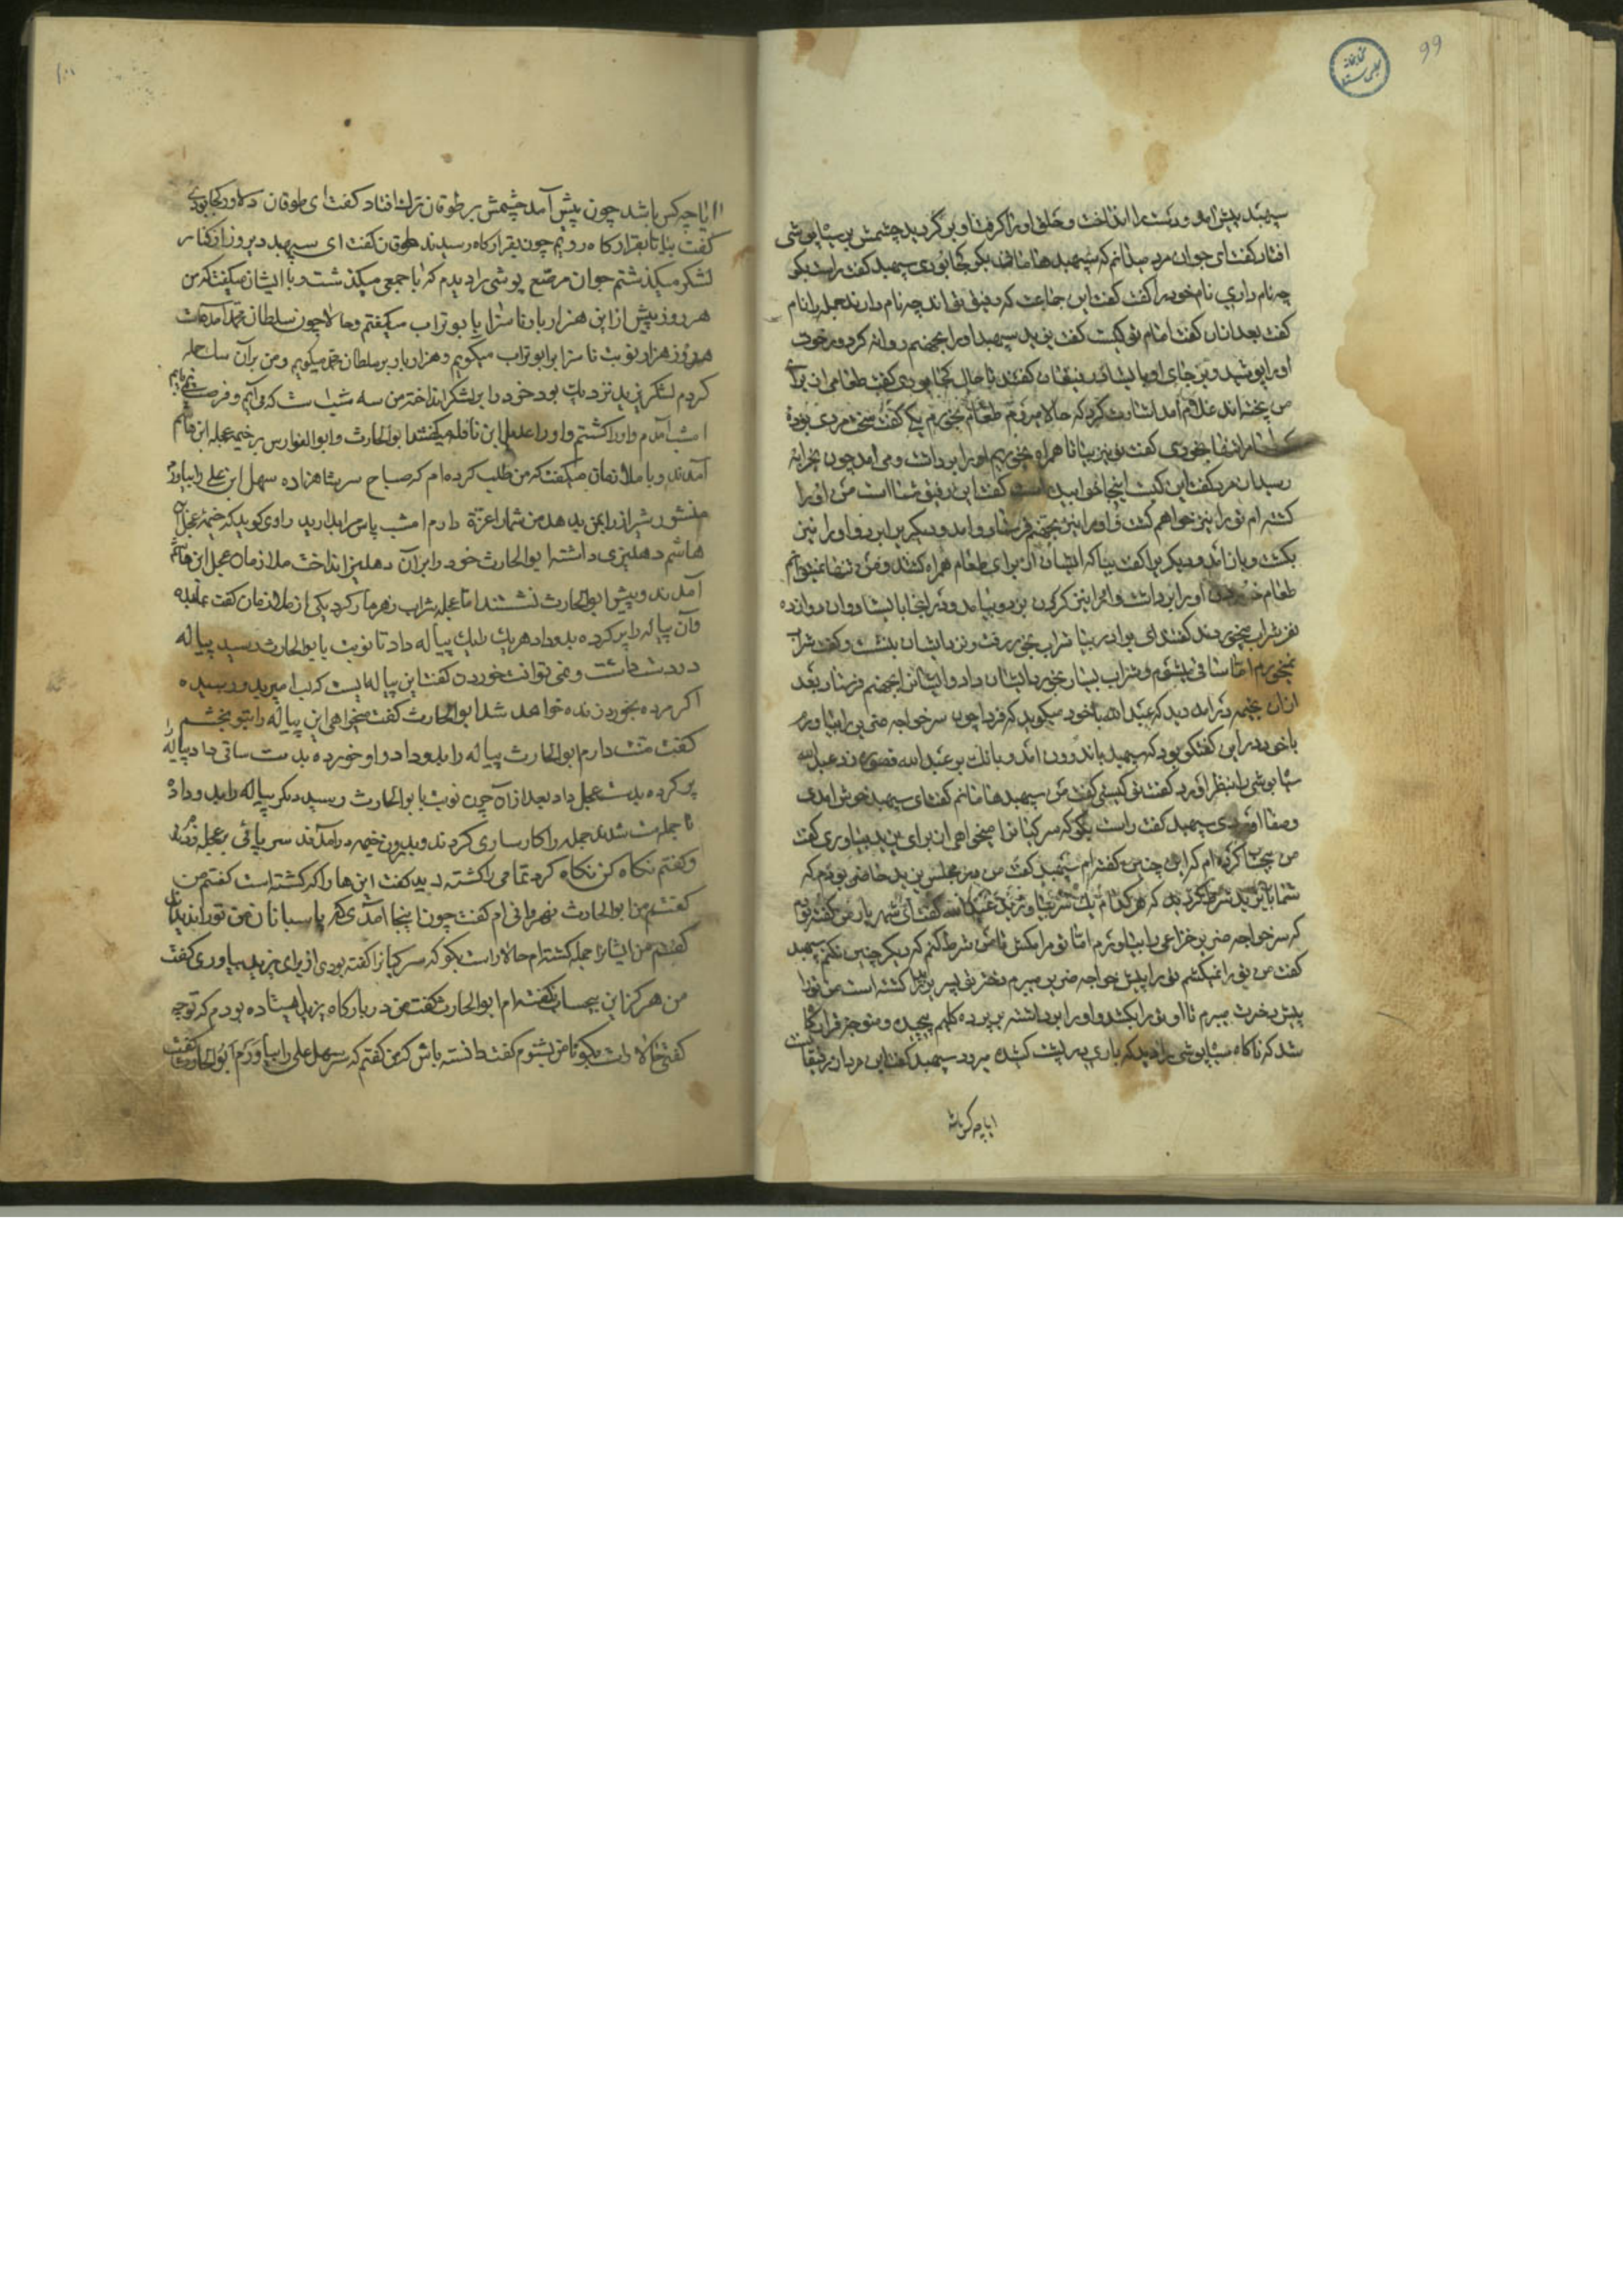 99
کتابخانه
مجلس سنا
سپهبد پیش آمد و دست را انداخت و حلق او را گرفت او بر گردید چشمش بر سیاپوشی
افتاد گفت ای جوان مرد میدانم که سپهبد هامانی بگو کجا بودی سپهبد گفت راست بگو
چه نام داری نام خود را گفت گفت این جماعت که رفیق تو اند چه نام دارند جمله را نام
گفت بعد از آن گفت امام تو کیست گفت یزید سپهبد او را بجهنم روانه کرد و رخوت
او را پوشید و بر جای او رفیقان گفتند تا حال کجا بودی گفت طعامی از برای
من پخته اند غلام آمد اشارت کرد که حالا مردم طعام بخورم یکی گفت سخی مردی بوده
خوری گفت تو نیز بیا تا همراه بخوریم او را برداشت و می آمد چون بخرابه
رسیدن مرد گفت این کیست اینجا خوابیده است گفت این رفیق شما است من او را
کشته ام تو را نیز خواهم کشت و او را نیز بجهنم فرستاد و آمد و دیگری را برد و او را نیز
بکشت و باز آمد و دیگری را گفت بیا که ایشان از برای طعام همراه کشتند و من تنها نمیتوانم
طعام خوردن او را برداشت و او را نیز گردن بزد و بیامد و در اینجا با ایشان دوازده
نفر شراب میخوردند گفتند ای برادر بیا شراب بخور رفت و نزد ایشان بنشست و گفت شراب
نمیخورم اما ساقی میشوم و شراب بسیار بخورد ایشان داد و ایشان را بجهنم فرستاد بعد
از آن بخیمه در آمد دید که عبدالله با خود میگوید که فردا چون سر خواجه ضریر را بیاورم
با خود در این گفتگو بود که سپهبد باندرون آمد و بانک بر عبدالله قصوره زد عبدالله
سیاپوشی را بنظر آورد گفت تو کیستی گفت من سپهبد هامانم گفت ای سپهبد خوش آمدی
و صفا آوردی سپهبد گفت راست بگو که سر کیانرا میخواهی از برای یزید بیاوری گفت
من کرده ام که این چنین گفته ام سپهبد گفت من در مجلس یزید حاضر بودم که
شما با یزید شرط کردید که هر کدام یک سر بیاورید عبدالله گفت ای شهریار من گفته بودم
که سر خواجه ضریر خزاعی را بیاورم اما تو مرا مکش تا من شرط کنم که دیگر چنین نکنم سپهبد
گفت من تو را نمیکشم تو را پیش خواجه ضریر میبرم دختر تو پسر یزید را کشته است من تو را
پیش دخترت میبرم تا او تو را بکشد و او را برداشته بر پرده کلیم پیچیده و متوجه قرارگاه
شد که ناگاه سیاپوشی را دید که باری در پشت کشیده میرود سپهبد گفت این مردان رفیقانست
ایا چه کس باشد
۱۰۰
ایا چه کس باشد چون پیش آمد چشمش بر طوقان ترک افتاد گفت ای طوقان دلاور کجا بودی
گفت بیا تا بقرارگاه رویم چون بقرارگاه رسیدند طوقان گفت ای سپهبد دیروز از کنار
لشکر میگذشتم جوان مرصع پوشی را دیدم که با جمعی میگذشت و با ایشان میگفت که من
هر روز پیش از این هزار بار ناسزا با بو تراب میگفتم و حالا چون سلطان محمد آمده است
هر روز هزار نوبت ناسزا برابو تراب میگویم و هزار بار بر سلطان محمد میگویم و من بر آن سات حمله
کردم لشکر یزید نزدیک بود خود را بر لشکر انداختم من سه شب است که می آیم و فرصت نمی یابم
امشب آمدم و او را کشتم و او را عدیل ابن نافله میگفتند ابوالحارث و ابوالفوارس بر خیمه عجلة ابن هاشم
آمدند و با ملازمان میگفت که من طلب کرده ام که صباح سر شاهزاده سهل ابن علی را بیاورم
منشور شیراز را بمن یزید بدهد من شما را عزت دارم امشب پاس مرا بدارید راوی گوید که خیمه عجل ابن
هاشم دهلیزی داشت ابوالحارث خود را بر آن دهلیز انداخت ملازمان عجل ابن هاشم
آمدند و پیش ابوالحارث نشستند اما عجله شراب زهر مار کرد یکی از ملازمان گفت
و آن پیاله را پر کرده بدو داد هر یک را یک پیاله داد تا نوبت با بوالحارث رسید پیاله
در دست داشت و نمی توانست خوردن گفت این پیاله ایست که
اگر مرده بخورد زنده خواهد شد ابوالحارث گفت میخواهی این پیاله را بتو بخشم
گفت منت دارم ابوالحارث پیاله را بدو داد و او خورده بدست ساقی داد پیاله
پر کرده بدست عجل داد بعد از آن چون نوبت با بوالحارث رسید دیگر پیاله را بدو داد
تا جمله مست شدند جمله را کارسازی کردند و بدرون خیمه در آمدند سر پائی بر عجله زدند
و گفتم نگاه کن نگاه کرد تمامی را کشته دید گفت این ها را که کشته است گفتم من
گفتم من ابوالحارث نهروانی ام گفت چون اینجا آمدی مگر پاسبانان من تو را ندیدند
گفتم من ایشانرا جمله کشته ام حالا راست بگو که سر کیانرا گفته بودی از برای یزید بیاوری گفت
من هرگز این نگفته ام ابوالحارث گفت من در بارگاه یزید ایستاده بودم که تو چه
گفتی حالا راست بگو تا من بشنوم گفت دانسته باش که من گفتم که سر سهل علی را بیاورم ابوالحارث گفت